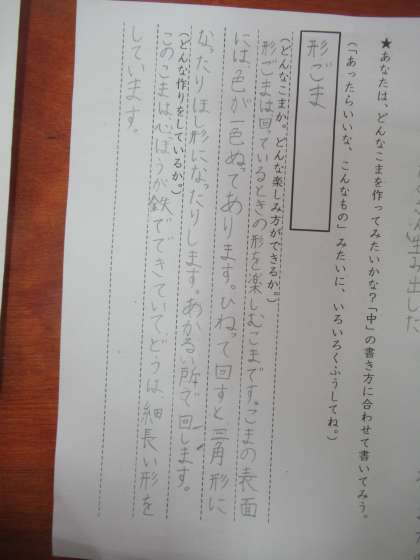 ★あなたは、どんなこまを作ってみたいかな？「中」の書き方に合わせて書いてみよう。
（「あったらいいな、こんなもの」みたいに、いろいろくふうしてね。）
形ごま
（どんなこまか。どんな楽しみ方ができるか。）
形ごまは回っているときの形を楽しむこまです。こまの表面
には、色が一色ぬってあります。ひねって回すと、三角形に
なったりほし形になったりします。あかるい所で回します。
（どんな作りをしているか。）
このこまは心ぼうが鉄でできていてどうは細長い形を
しています。